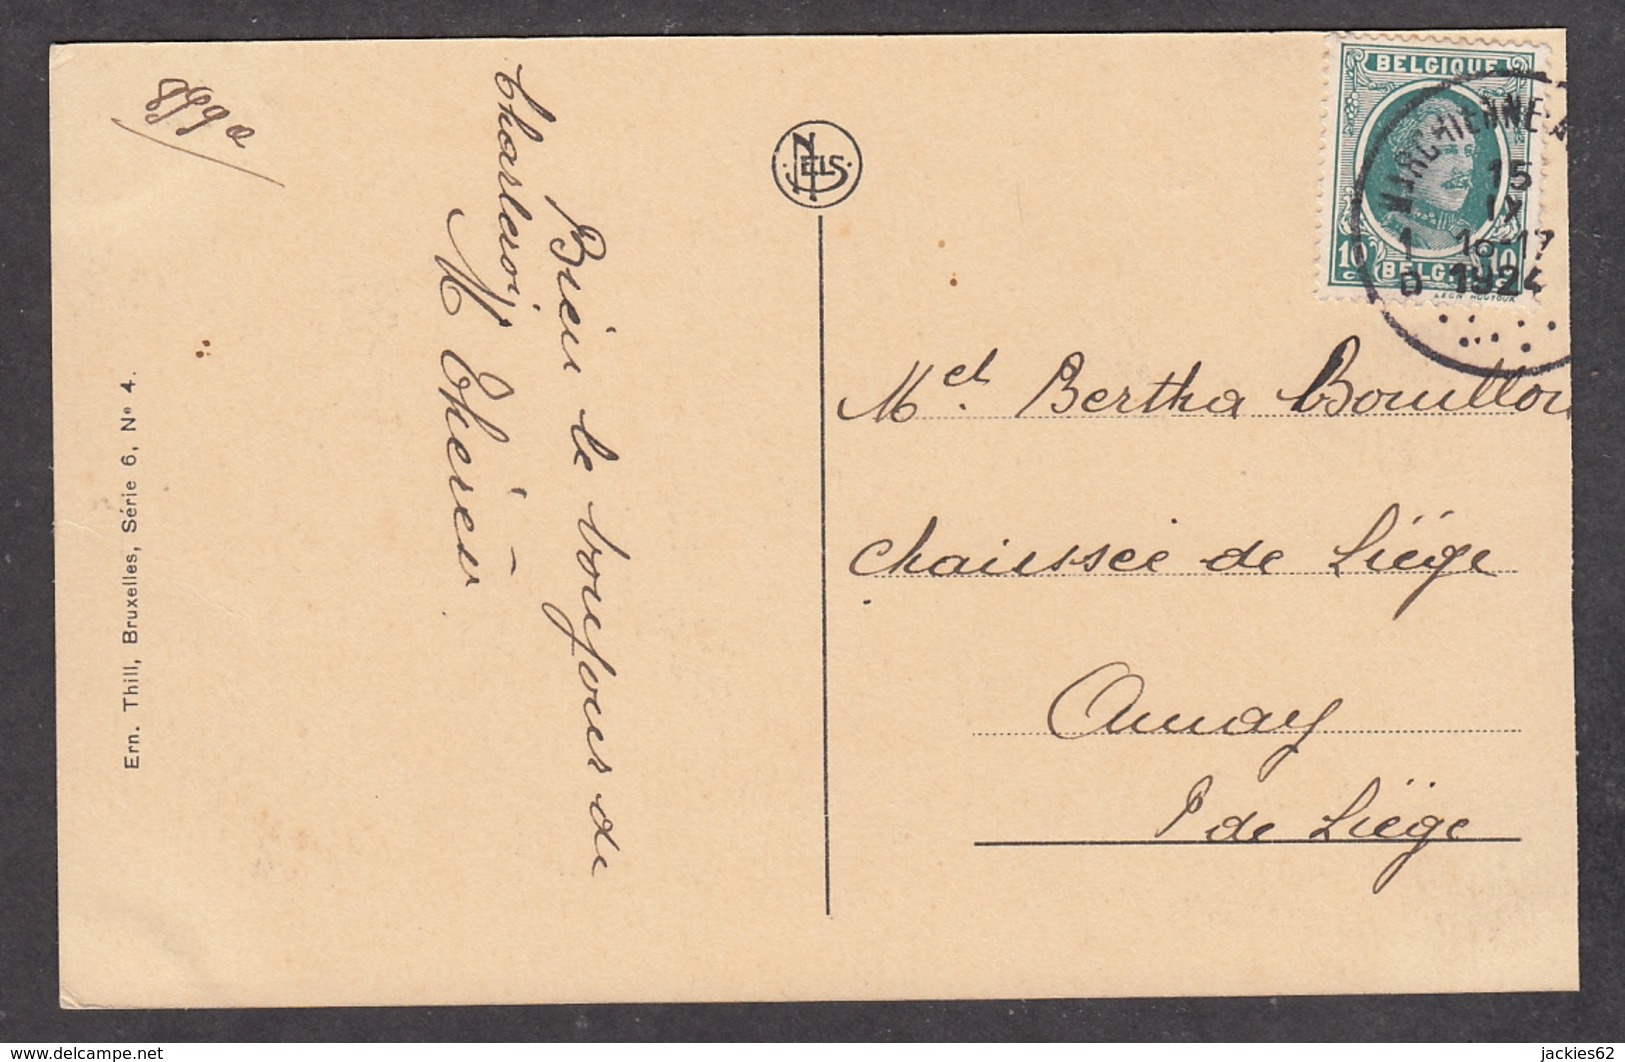 899a
Bien le bonjour de
Charleroi
M Thérèse
Ern. Thill, Bruxelles, Série 6, No 4.
NELS
BELGIQUE
10 c BELGIË 10
LEON HOUYOUX
MARCHIENNE-A
15
IX
1 16-17
D 1924
Mel. Bertha Bouillon
Chaussée de Liège
Amay
P de Liège
www.delcampe.net
jackies62